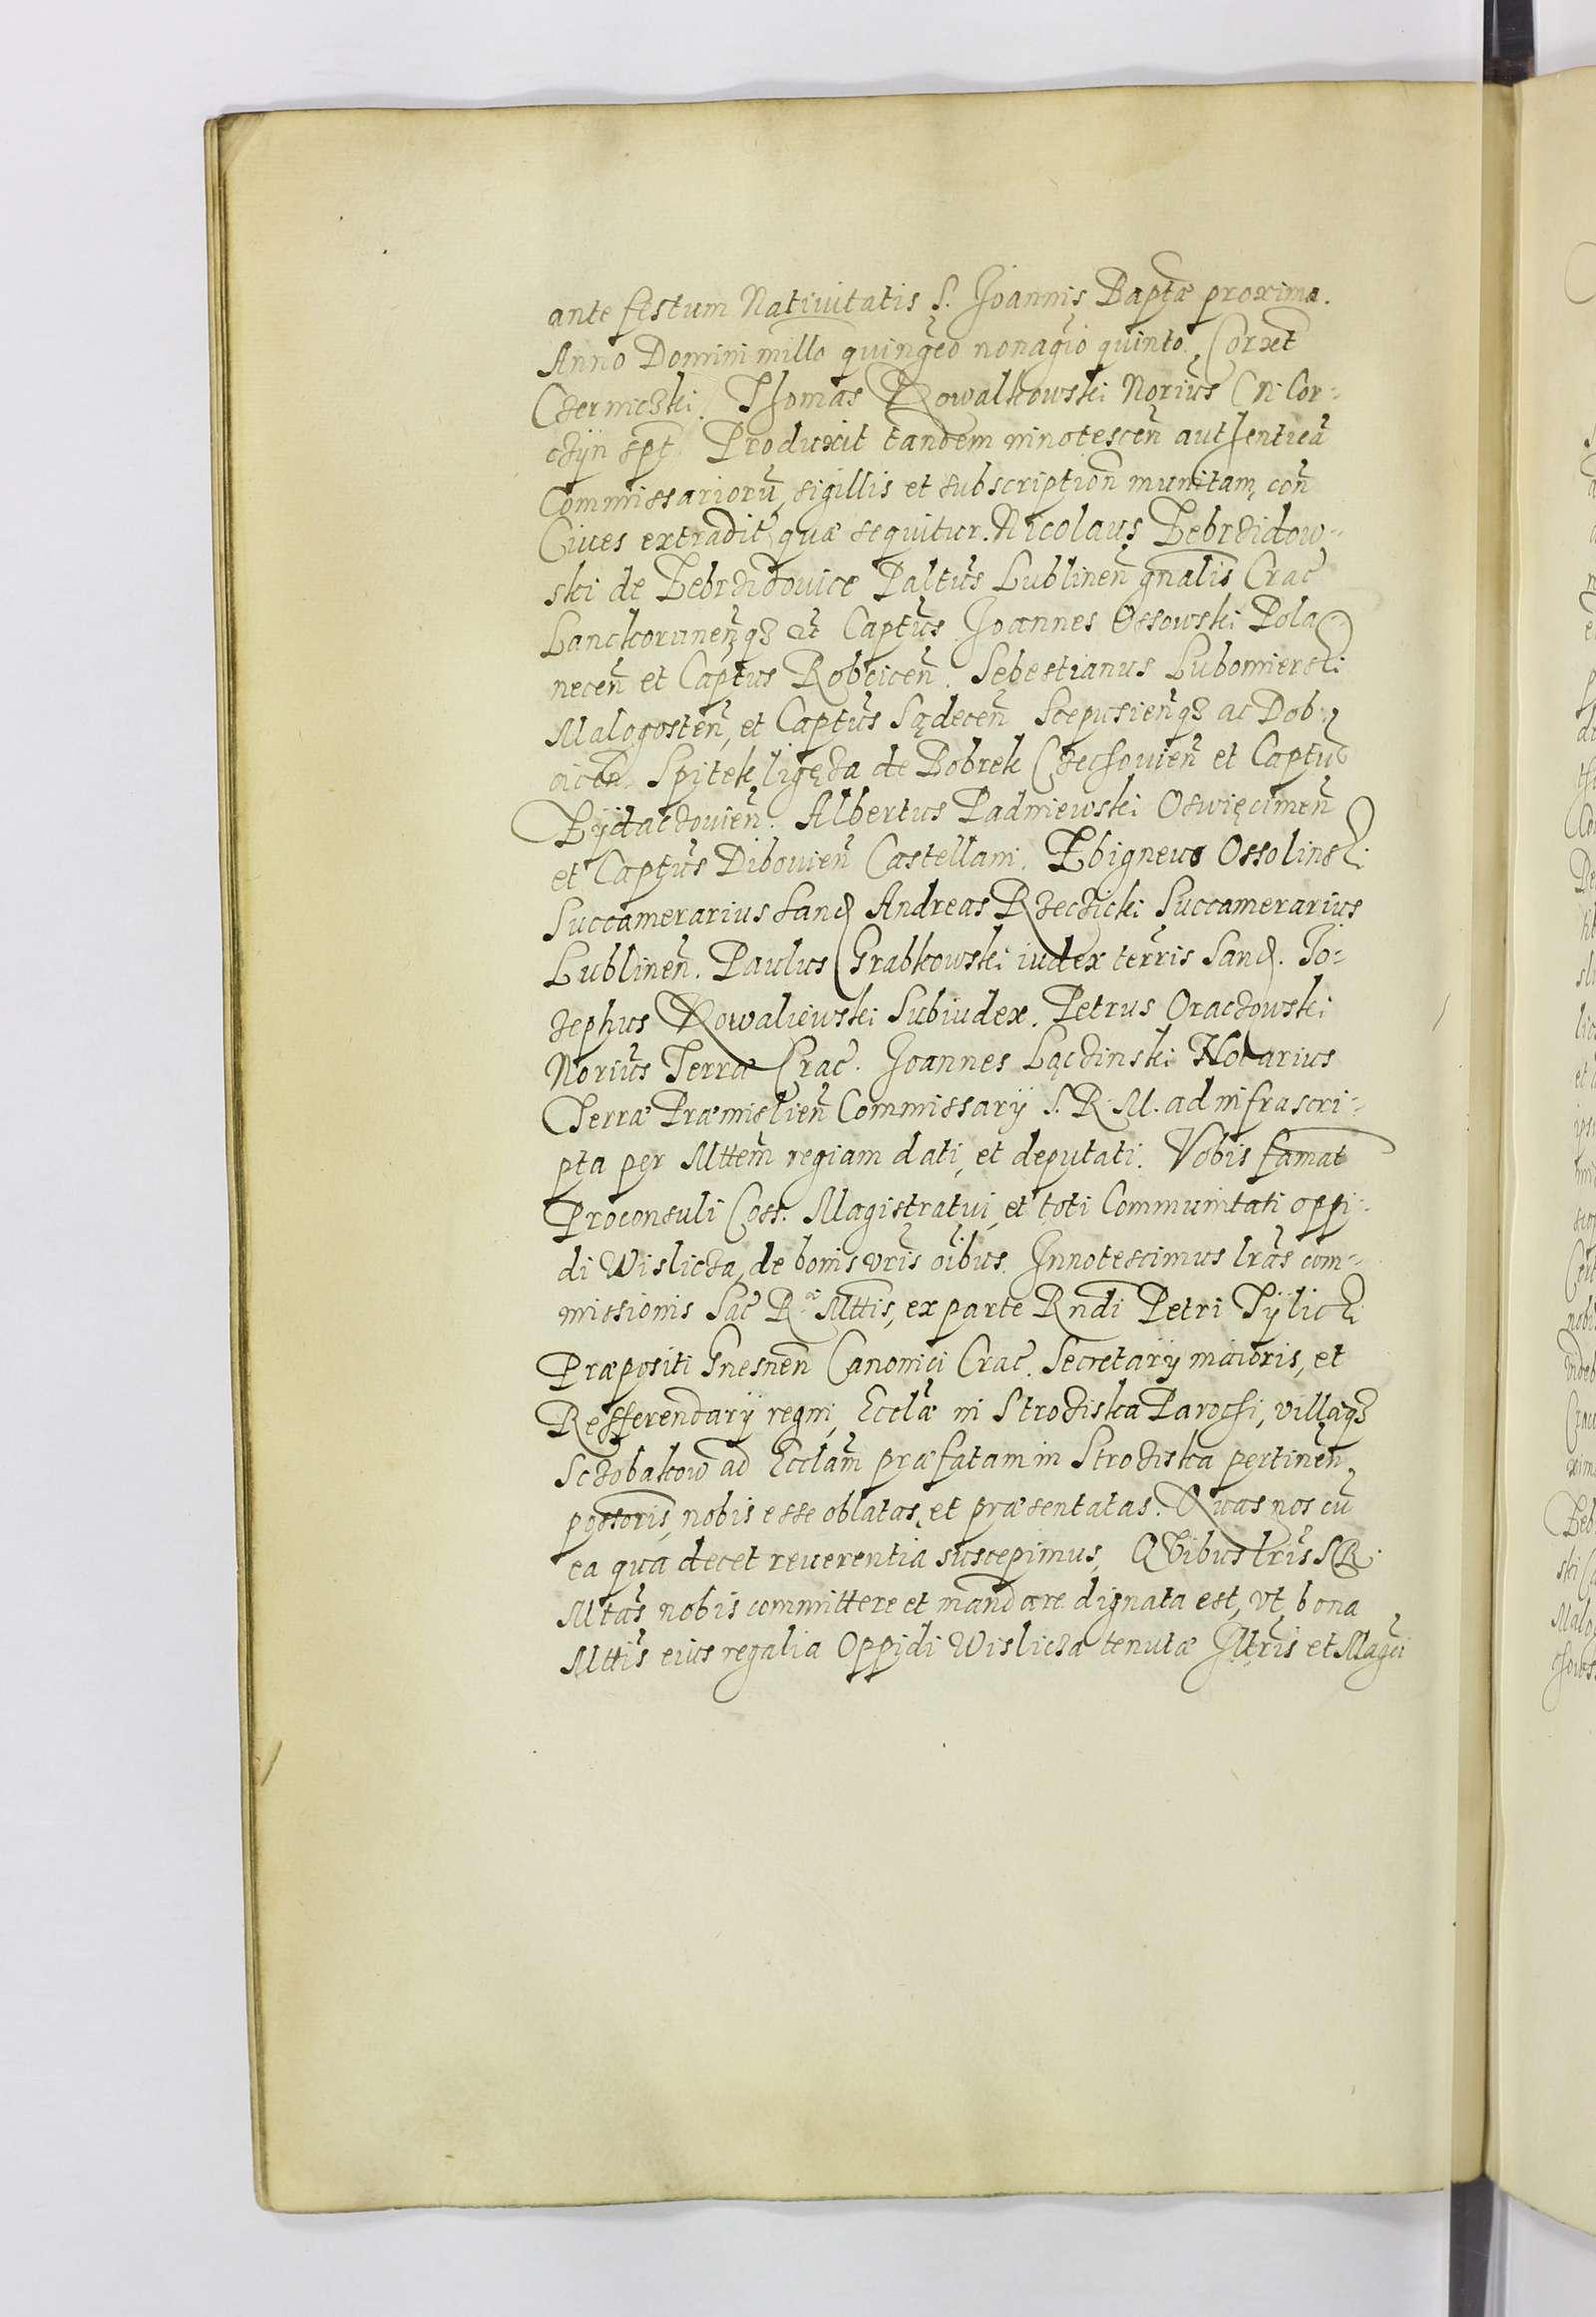 ante festum Natiuitatis S. Joannis Baptæ proxima.
Anno Domini millo quingeo nonagio quinto. Corxt
Czerniczki. Thomas Kowalkowski Norius Cn Cor-
czÿn spt. Produxit tandem innotescen authenticā
Commissariorū, sigillis et subscription munitam, con
Ciues extradit, quæ sequitur. Nicolaus Zebrzidow-
ski de Zebrzidouice Paltus Lublinen gnalis Crac
Lanckorunenqз et Captus. Joannes Ossowski Pola
necen et Captus Robcicen. Sebestianus Lubomierski
Malogosten, et Captus Sądecen Scepusienqз ac Dob-
cicen. Spÿtek ligęza de Bobrek Czechouien et Captus
Zÿdaczouien. Albertus Padniewski Oswięcimen
et Captus Dibouien Castellani. Zbigneus Ossolinski
Succamerarius Sand Andreas Rzeczicki Succamerarius
Lublinen. Paulus Grabkowski iudex terris Sand. Jo-
zephus Kowaliewski Subiudex. Petrus Oraczowski
Norius Terræ Crac. Joannes Łączinski Notarius
Terræ Præmislien Commissarÿ S. R. M. ad infrascri-
pta per Mttem regiam dati, et deputati. Vobis famat
Proconsuli Coss. Magistratui, et toti Communitati oppi-
di Wislicza, de bonis vris oibus. Innotescimus lras com-
missionis Sac Rᵃ Mttis, ex parte Rndi Petri Tÿlicki
Præpositi Gnesnen Canonici Crac. Secretarÿ maioris, et
Refferendarÿ regni, Ecclæ in Stroziska Parochi, villæqз
Sczobakow ad Ecclam præfatam in Stroziska pertinen,
pssoris, nobis esse oblatas, et præsentatas. Quas nos cū
ea qua decet reuerentia suscepimus, QVibus lris S R
Mtas nobis committere et mandare dignata est, vt bona
Mttis eius regalia Oppidi Wislicza tenutæ Illtris et Magci